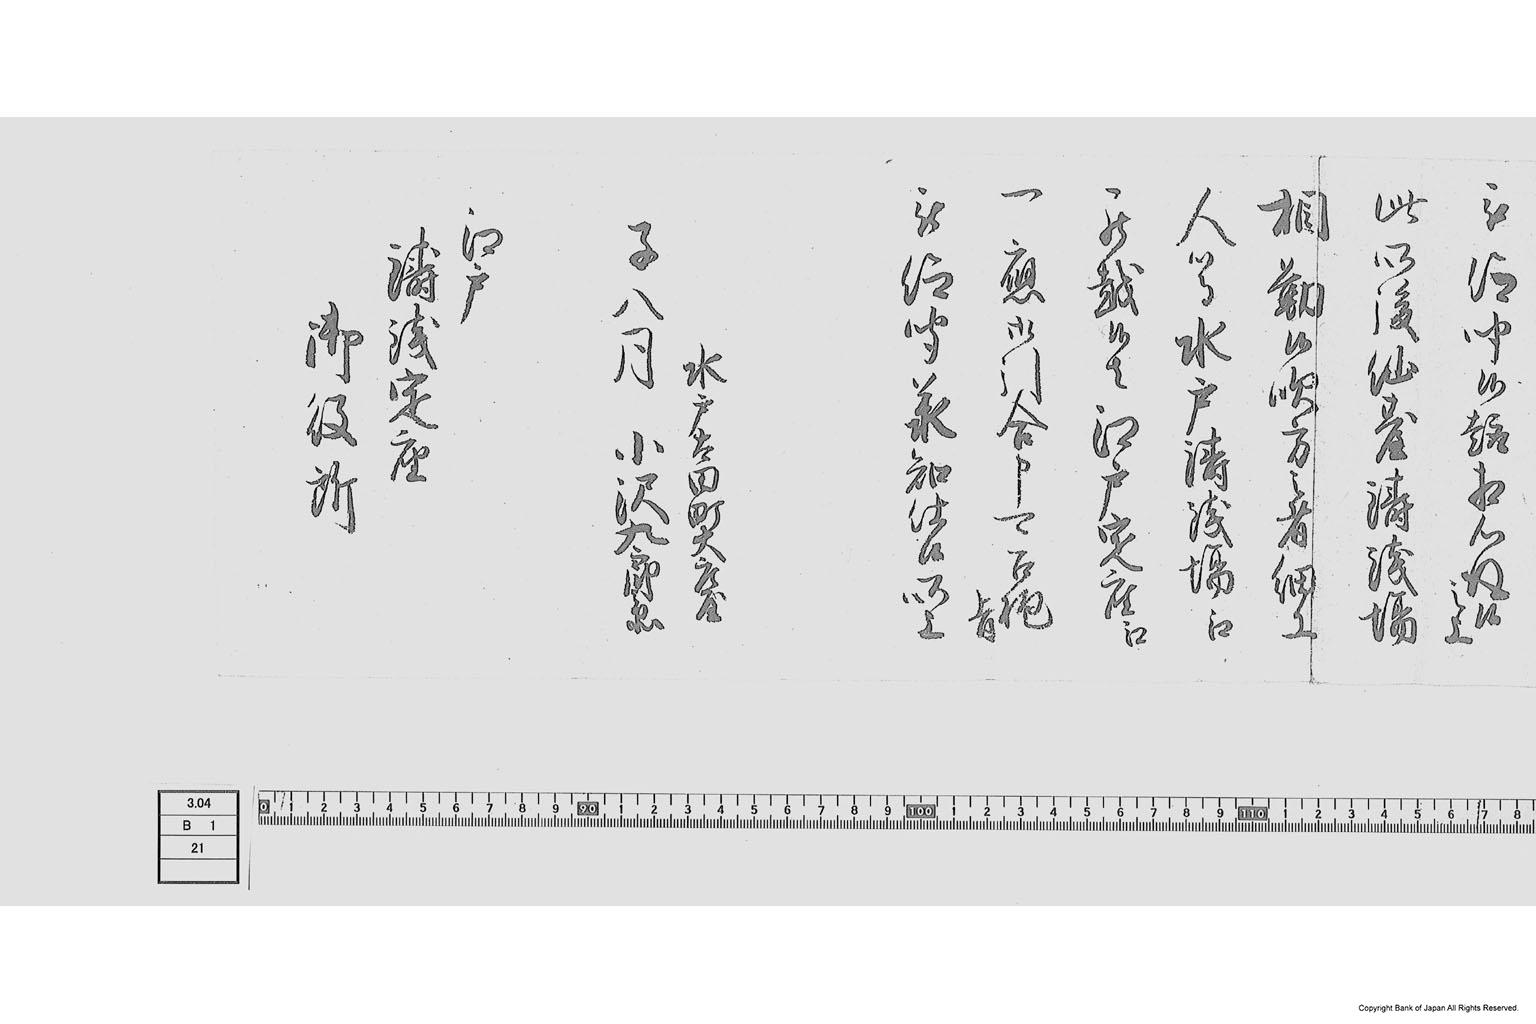 被仰聞候趣相心得候
之上
此以後仙台鋳銭場
相勤候吹方之者細工
人等水戸鋳銭場江
罷越候ハヽ江戸定座江
一應御問合申可召抱
旨
被仰聞承知仕候以上
水戸吉田町大座
子八月 小沢九郎兵
江戸
鋳銭定座
御役所
3.04
B 1
21
0 1 2 3 4 5 6 7 8 9 90 1 2 3 4 5 6 7 8 9 100 1 2 3 4 5 6 7 8 9 110 1 2 3 4 5 6 7 8
Copyright Bank of Japan All Rights Reserved.